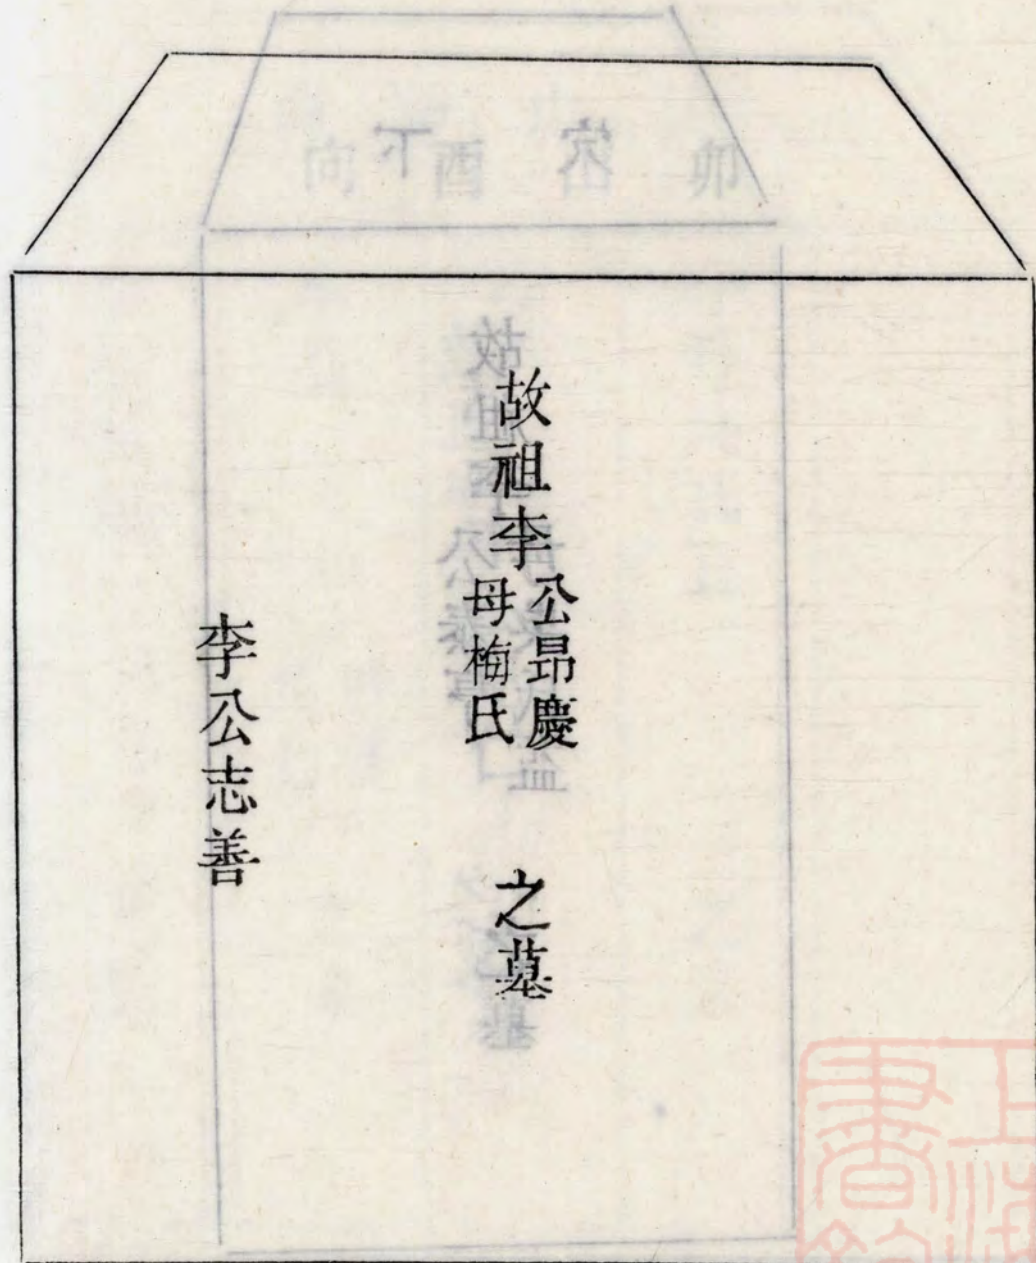 故祖李
公昂慶
母梅氏
之墓
李公志善